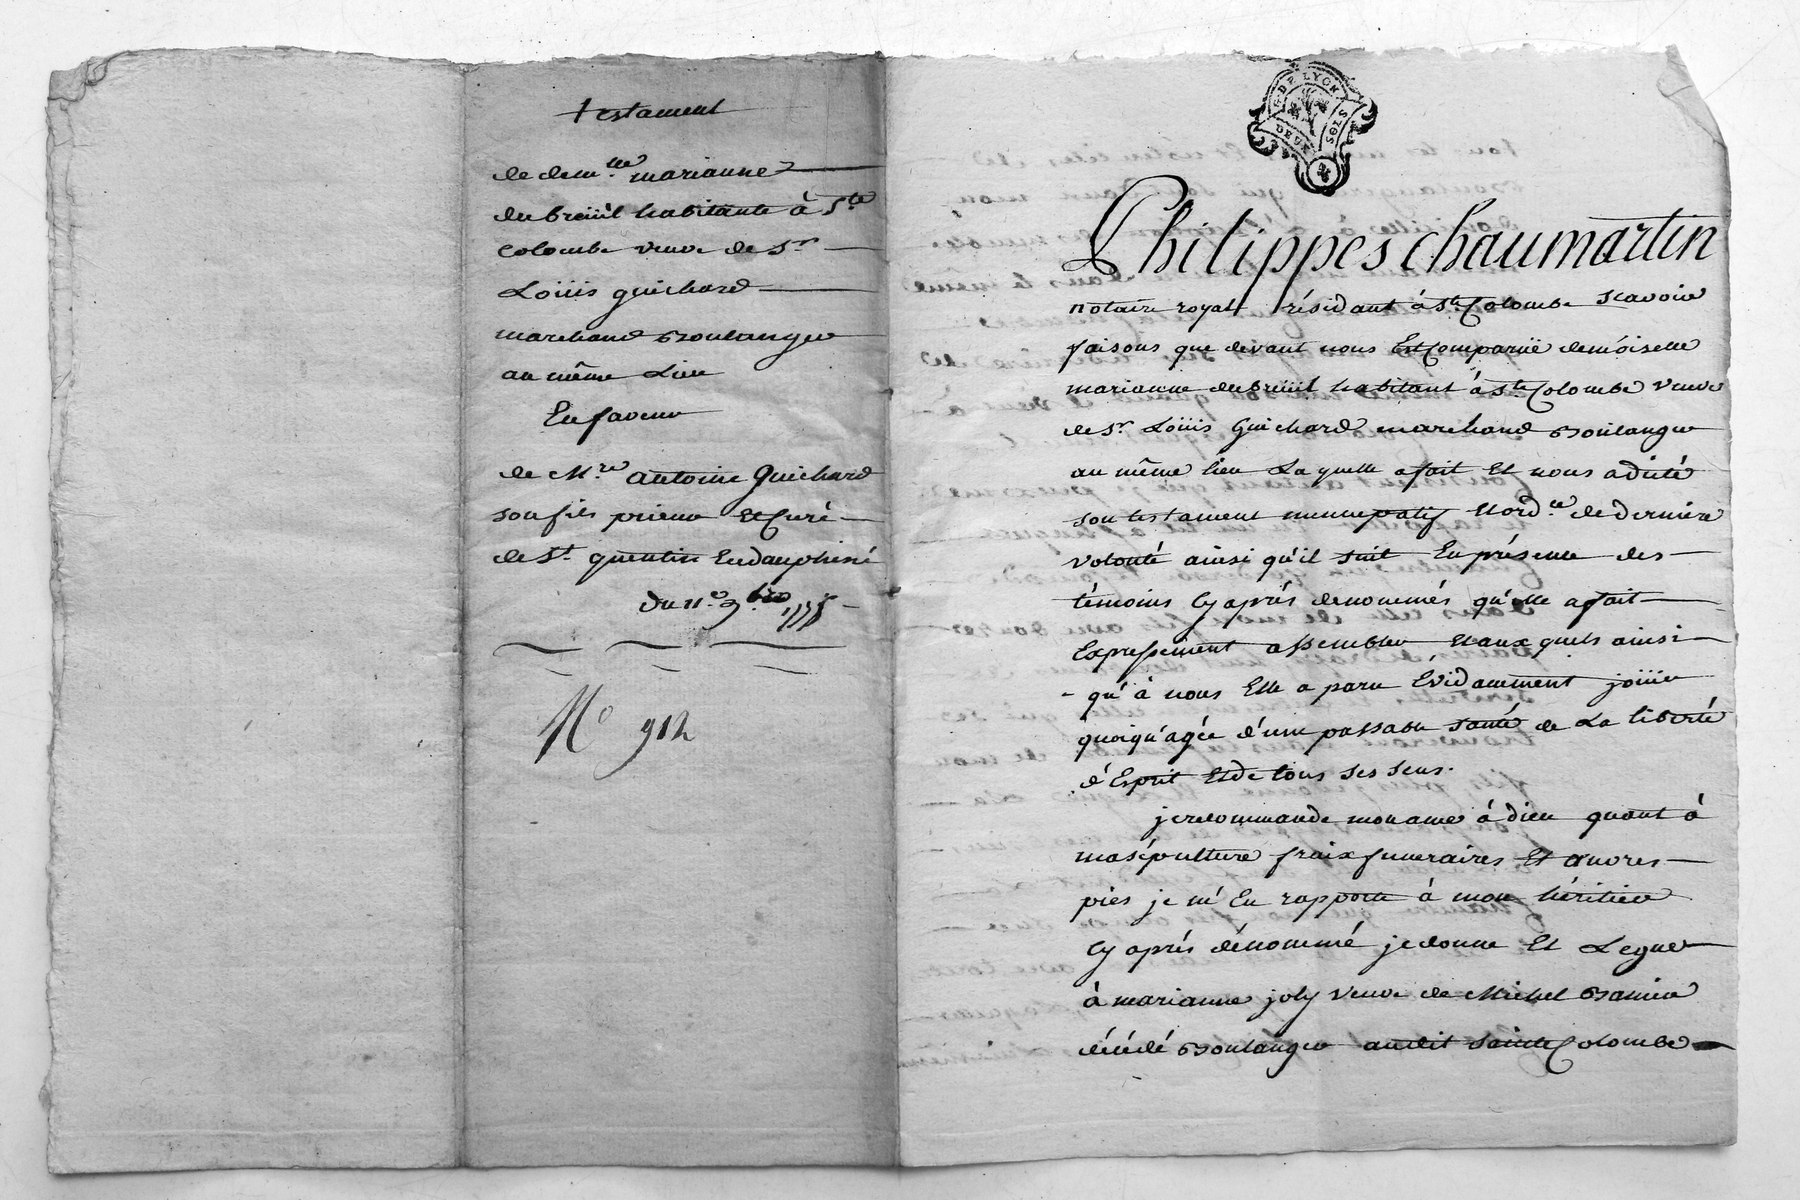 testament
de dem.lle marianne
du breüil habitante à Ste
Colombe veuve de Sr
Loüis guichard
marchand Boulanger
au même Lieu
En faveur
de M.re antoine Guichard
son fils prieur Et Curé
de St quentin En dauphiné
du 11.e 9.bre
N.o 912
G. DE LYON
DEUX SOLS
Philippes Chaumartin
notaire royal résidant à Ste Colombe scavoir
faisons que devant nous Est Comparüe demoiselle
marianne du breüil habitant à Ste Colombe veuve
de Sr Loüis Guichard marchand Boulanger
au même lieu Laquelle a fait Et nous a dicté
son testament nuncupatif Et ord.ce de derniere
volonté ainsi qu'il suit En présence des
témoins Cy aprés denommés qu'elle a fait
Expressement assembler Et aux quels ainsi
- qu'à nous Elle a paru Évidamment joüir
quoiqu'agée d'une passable santé de La liberté
d'Esprit Et de tous ses sens.
je recommande mon ame à dieu quant à
ma sépulture fraix funeraires Et œuvres
pies je m'En rapporte à mon héritier
Cy aprés dénommé je donne Et Legue
à marianne joly veuve de Michel
décédé Boulanger au dit Sainte Colombe